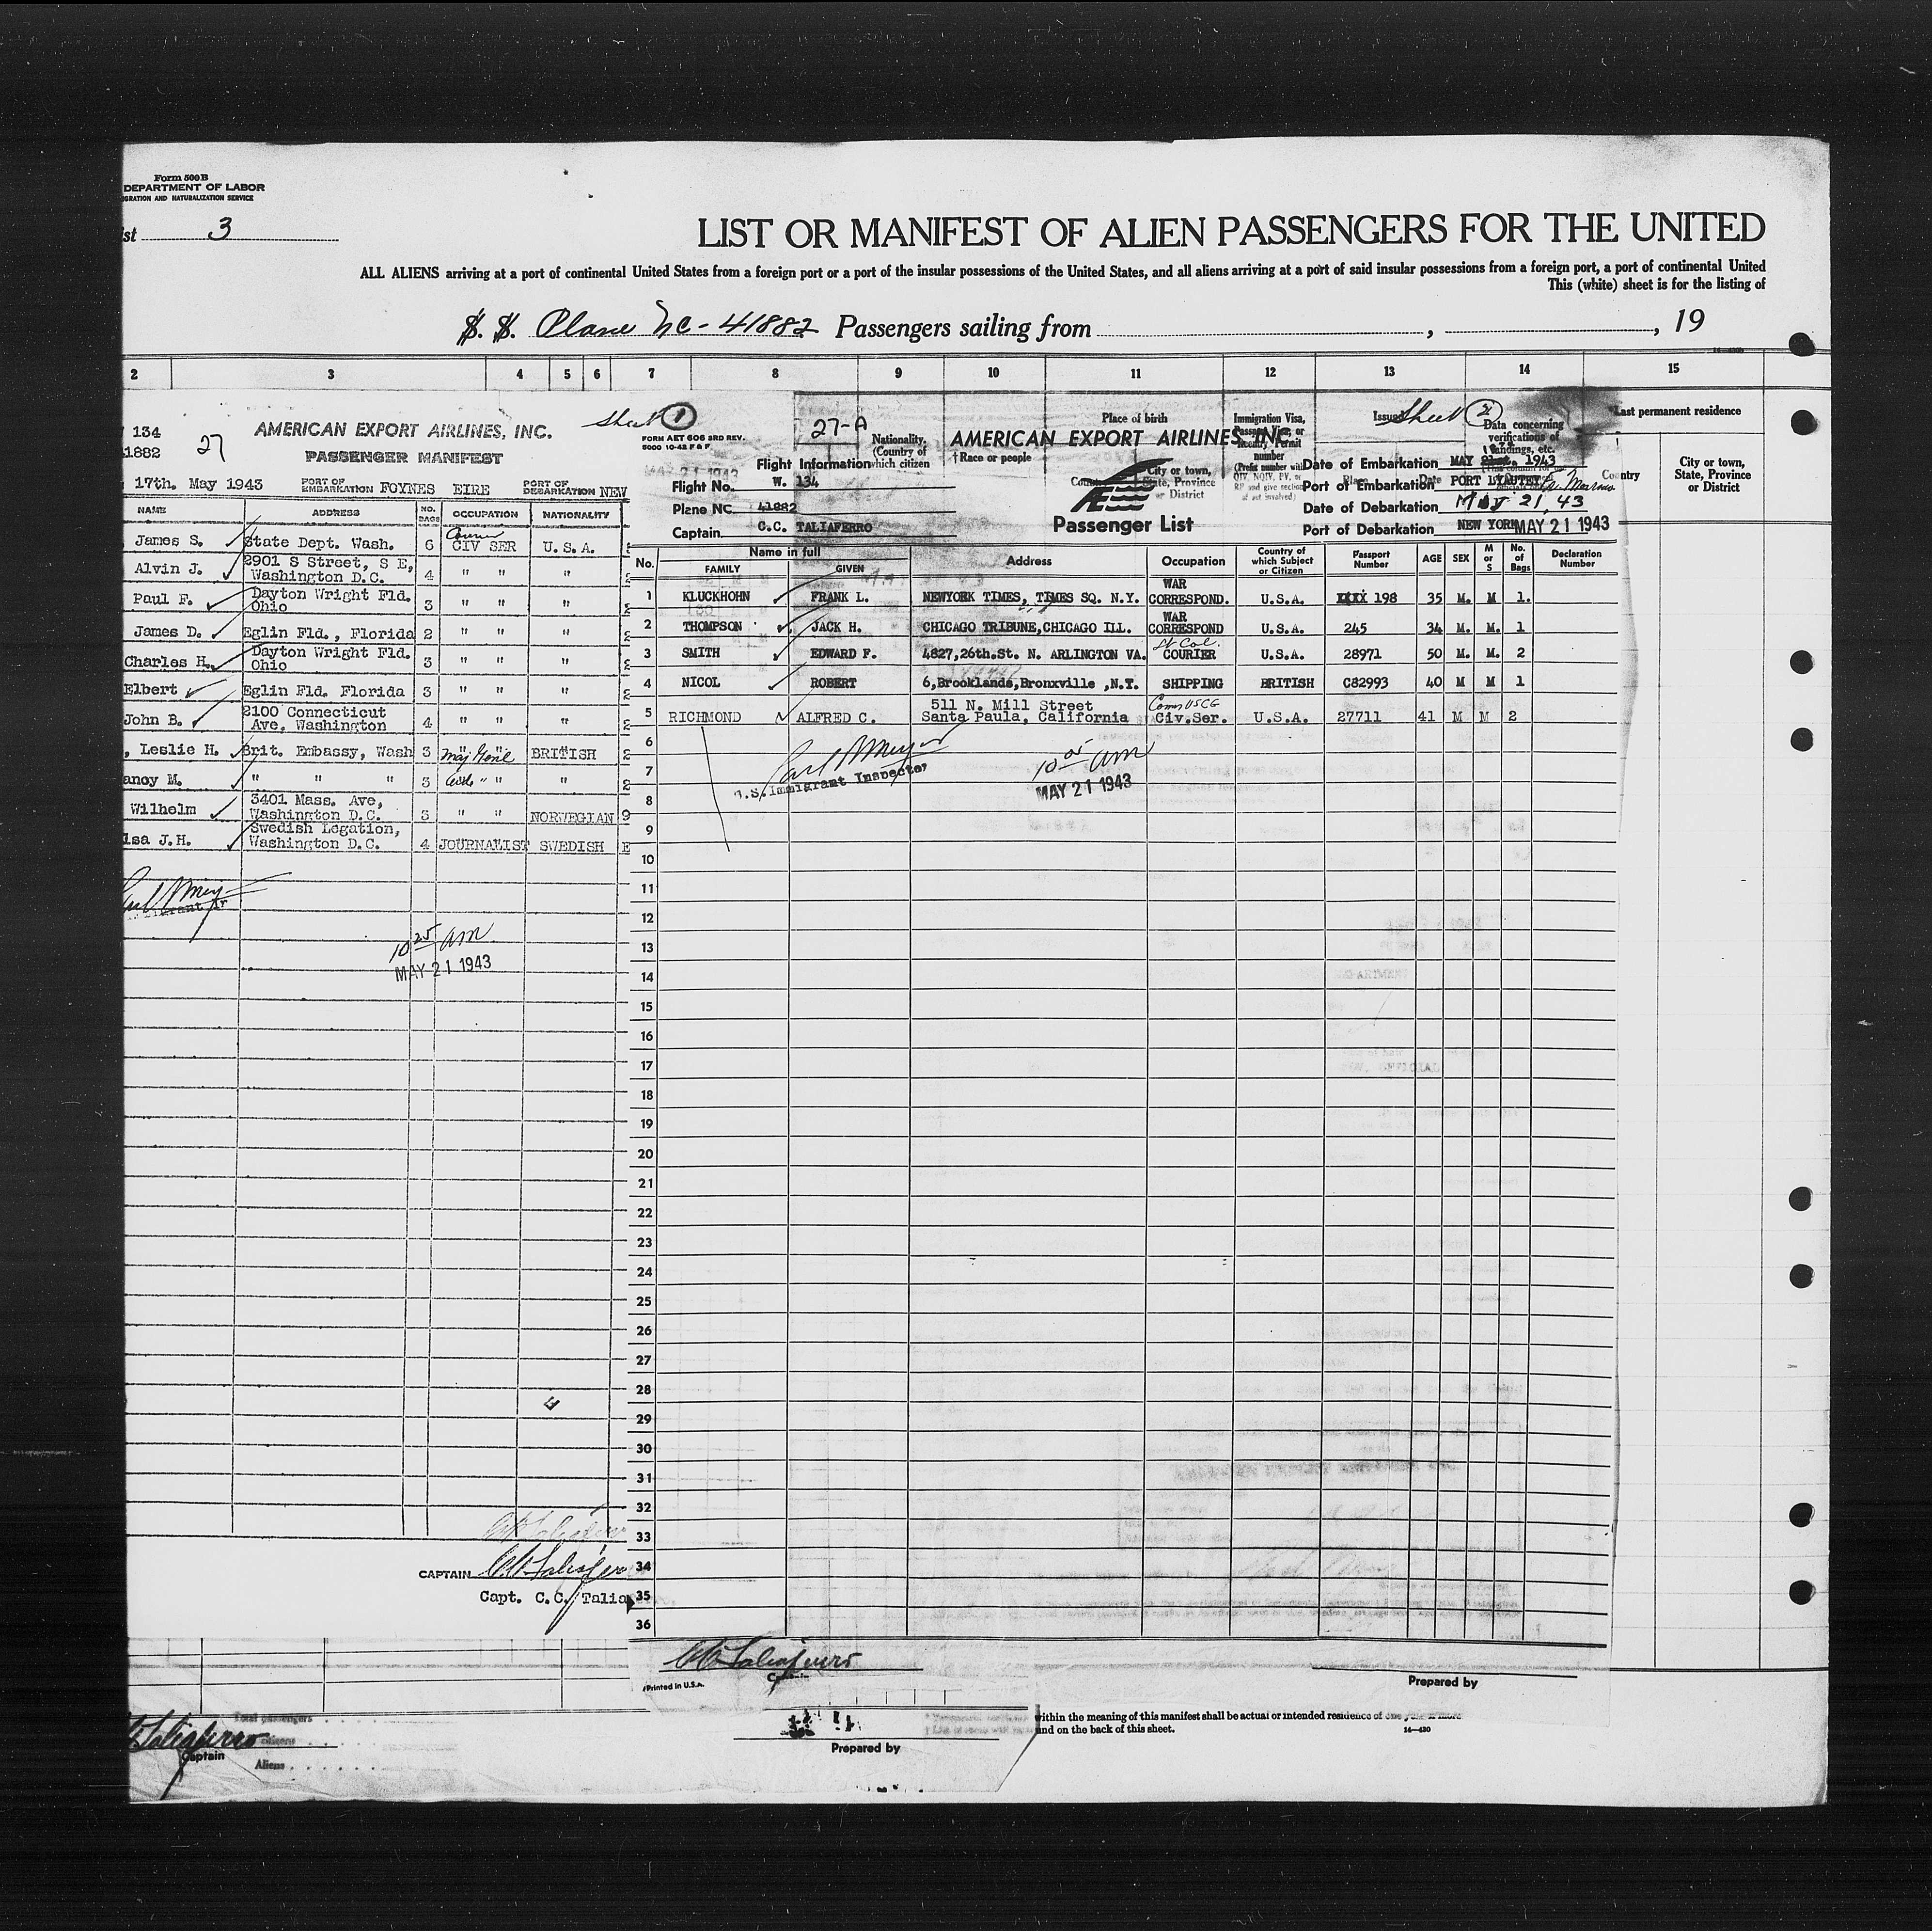 Form 500B
DEPARTMENT OF LABOR
IGRATION AND NATURALIZATION SERVICE
ist 3
LIST OR MANIFEST OF ALIEN PASSENGERS FOR THE UNITED
ALL ALIENS arriving at a port of continental United States from a foreign port or a port of the insular possessions of the United States, and all aliens arriving at a port of said insular possessions from a foreign port, a port of continental United
This (white) sheet is for the listing of
S. S. Plane NC-41882 Passengers sailing from , , 19
2 3 4 5 6 7 8 9 10 11 12 13 14 15
134
1882
27
AMERICAN EXPORT AIRLINES, INC.
Sheet 1
PASSENGER MANIFEST
17th. May 1943 PORT OF EMBARKATION FOYNES EIRE PORT OF DEBARKATION NEW
NAME ADDRESS NO. BAGS OCCUPATION NATIONALITY
James S. State Dept. Wash. 6 Courier CIV SER U.S.A.
Alvin J. 2901 S Street, S E, Washington D.C. 4 " " "
Paul F. Dayton Wright Fld. Ohio 3 " " "
James D. Eglin Fld., Florida 2 " " "
Charles H. Dayton Wright Fld. Ohio 3 " " "
Elbert Eglin Fld. Florida 3 " " "
John B. 2100 Connecticut Ave, Washington 4 " " "
, Leslie H. Brit. Embassy, Wash 3 " " BRITISH
ancy M. " " " 3 " " "
Wilhelm 3401 Mass. Ave, Washington D.C. 3 " " NORWEGIAN
lsa J.H. Swedish Legation, Washington D.C. 4 JOURNALIST SWEDISH
10 25 am
MAY 21 1943
CAPTAIN
Capt. C.C. Talia
Captain
Aliens
FORM AET 606 3RD REV.
5000 10-42 P & F
MAY 21 1943
27-A
Nationality, (Country of which citizen
Place of birth
†Race or people
City or town, State, Province or District
Sheet 2
Data concerning verifications of landings, etc.
Last permanent residence
Country
City or town, State, Province or District
AMERICAN EXPORT AIRLINES, INC.
Passenger List
Flight Information
Flight No. W. 134
Plane NC 41882
Captain C.C. TALIAFERRO
Date of Embarkation MAY 1943
Port of Embarkation PORT LYAUTEY
Date of Debarkation May 21, 43
Port of Debarkation NEW YORK MAY 21 1943
No. Name in full FAMILY GIVEN Address Occupation Country of which Subject or Citizen Passport Number AGE SEX M or S No. of Bags Declaration Number
1 KLUCKHOHN FRANK L. NEWYORK TIMES, TIMES SQ. N.Y. WAR CORRESPOND. U.S.A. 198 35 M. M 1.
2 THOMPSON JACK H. CHICAGO TRIBUNE,CHICAGO ILL. WAR CORRESPOND U.S.A. 245 34 M. M. 1
3 SMITH EDWARD F. 4827,26th.St. N. ARLINGTON VA. Lt Col. COURIER U.S.A. 28971 50 M. M. 2
4 NICOL ROBERT 6,Brooklands,Bronxville ,N.Y. SHIPPING BRITISH C82993 40 M M 1
5 RICHMOND ALFRED C. 511 N. Mill Street Santa Paula, California Comm USCG Civ.Ser. U.S.A. 27711 41 M M 2
6
7
8
9
10
11
12
13
14
15
16
17
18
19
20
21
22
23
24
25
26
27
28
29
30
31
32
33
34
35
36
U.S. Immigrant Inspector
10 05 am
MAY 21 1943
Printed in U.S.A.
Prepared by
Prepared by
within the meaning of this manifest shall be actual or intended residence of one year or more
und on the back of this sheet.